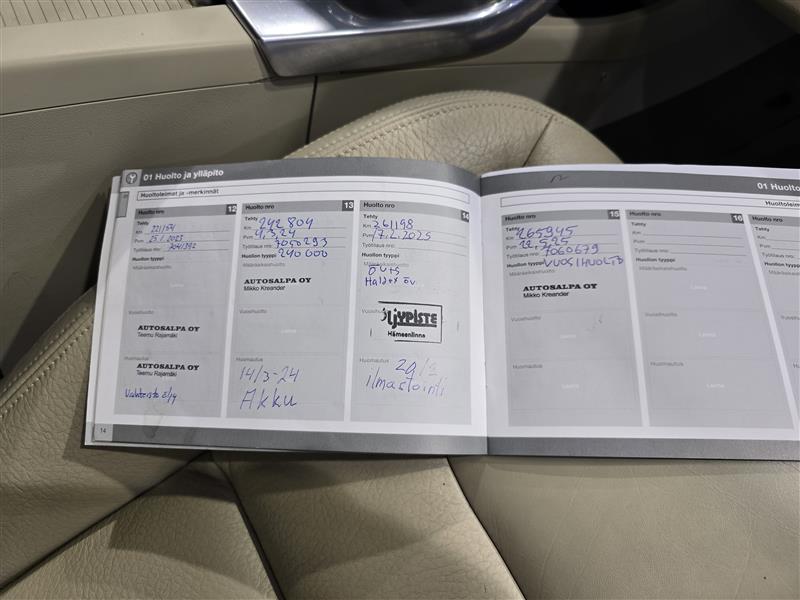 01 Huolto ja ylläpito
Huoltoleimat ja -merkinnät
Huolto nro 12
Tehty
Km 221154
Pvm 25.1.2023
Työtilaus nro:
Huollon tyyppi
Määräaikaishuolto
Leima
Vuosihuolto
AUTOSALPA OY
Teemu Rajamäki
Huomautus
AUTOSALPA OY
Teemu Rajamäki
14
Huolto nro 13
Tehty
Km 242 804
Pvm 4.3.24
Työtilaus nro: 7050293
Huollon tyyppi 240 000
Määräaikaishuolto
AUTOSALPA OY
Mikko Kreander
Vuosihuolto
Leima
Huomautus
14/3-24
Akku
Huolto nro 14
Tehty
Km 261198
Pvm 17.2.2025
Työtilaus nro:
Huollon tyyppi
Määräaikaishuolto
öv+s
Haldex öv
Vuosihuolto
ÖljyPISTE
Hämeenlinna
Huomautus
ilmastointi
01 Huolto
Huoltoleim
Huolto nro 15
Tehty
Km 265945
Pvm 12.5.25
Työtilaus nro: 7060679
Huollon tyyppi VUOSIHUOLTO
Määräaikaishuolto
AUTOSALPA OY
Mikko Kreander
Vuosihuolto
Leima
Huomautus
Leima
Huolto nro 16
Tehty
Km
Pvm
Työtilaus nro:
Huollon tyyppi
Määräaikaishuolto
Leima
Vuosihuolto
Leima
Huomautus
Leima
Huolto nro
Tehty
Km
Pvm
Työtilaus
Huollon tyyp
Määräaikaish
Vuosihuolto
Huomautus